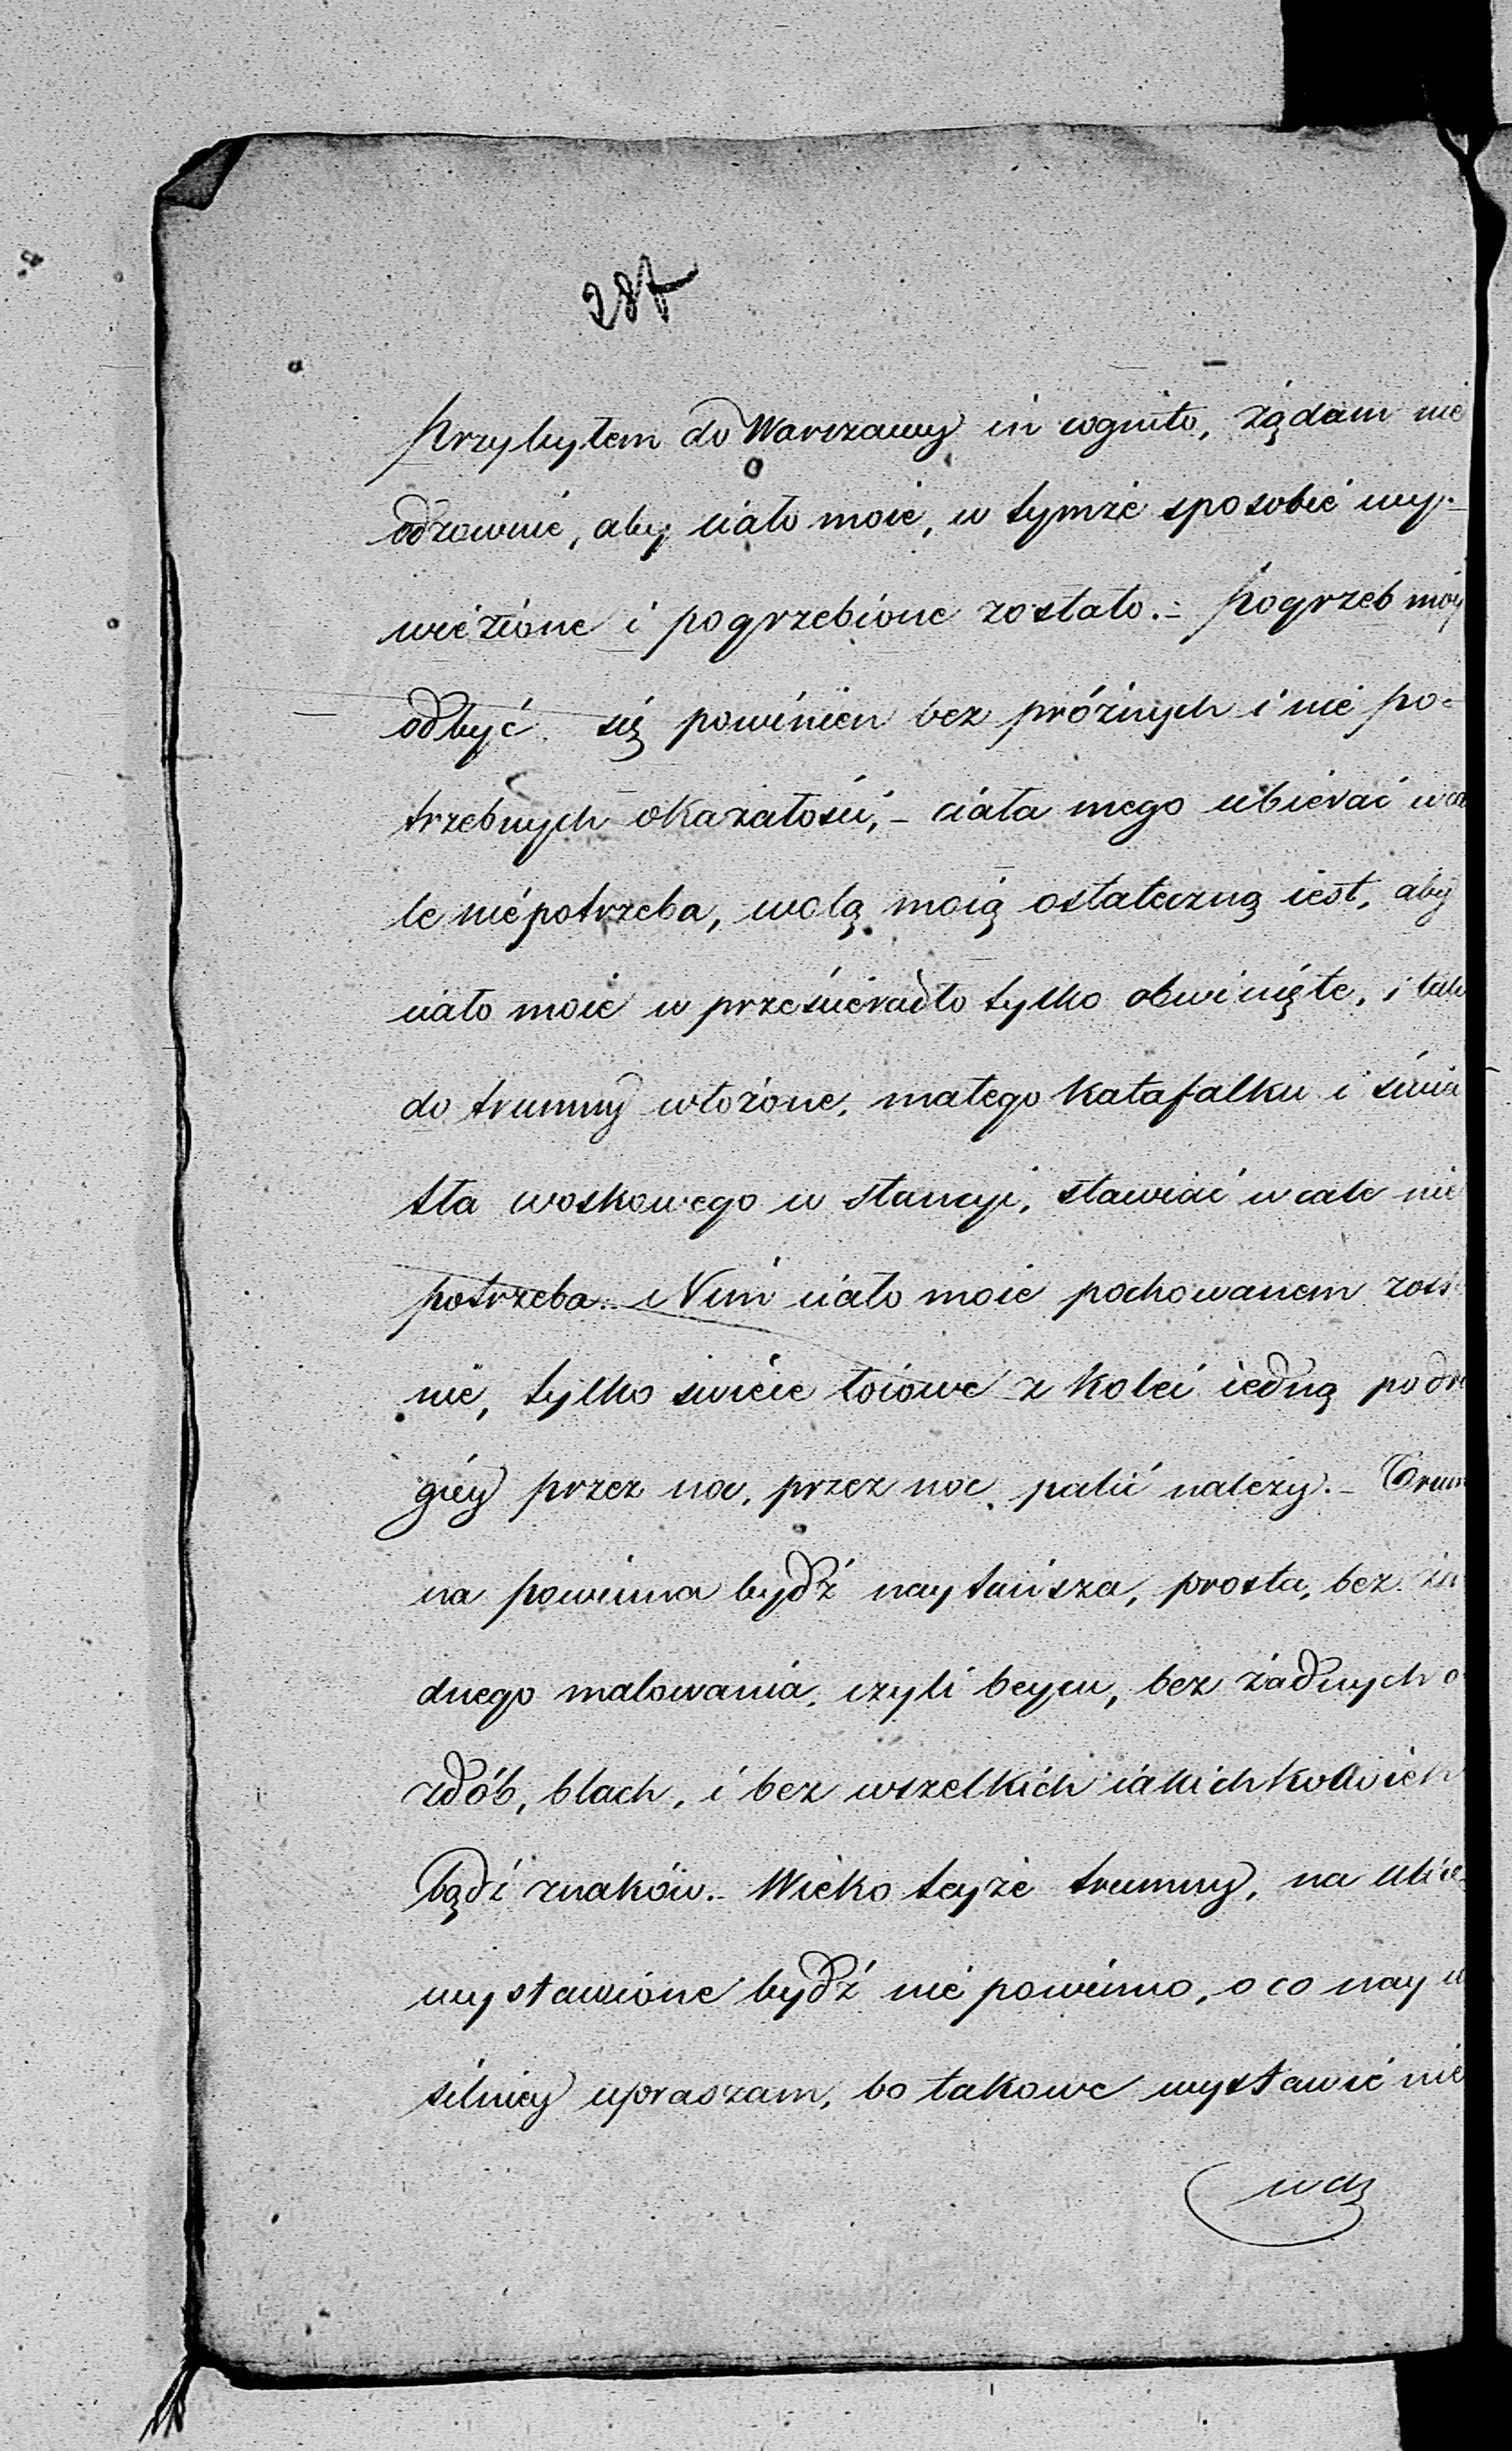 287
Przybyłem do Warszawy in cognito, żądam nie
odzownie, aby ciało moie, w tymże sposobie wy-
wieźione i pogrzebione zostało.- Pogrzeb móy
odbyć się powinien bez próżnych i nie po-
trzebnych okazałości,- ciała mego ubierać wca
le niepotrzeba, wolą moią ostateczną iest, aby
ciało moie w prześcieradło tylko obwinięte, i tak
do trumny włożone, małego Katafalku i świa
tła woskowego w stancyi, stawiać wcale nie
potrzeba.- Nim ciało moie pochowanem zosta
nie, tylko świéce łoiowe z kolei iedną po dru
giéy przez noc, przez noc palić należy.- Trum
na powinna bydź naytańsza, prosta, bez ża
dnego malowania, czyli beycu, bez żadnych o
zdób, blach, i bez wszelkich iakichkolwiek
bądź znaków.- Wieko teyże trumny, na ulice
wystawione bydź nie powinno, o co nay u
silniey upraszam, bo takowe wystawić nie